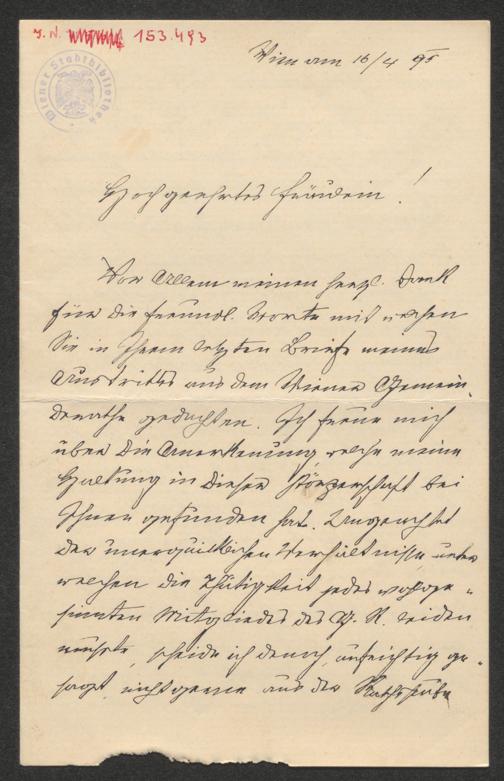 J. N. 153.493
Wiener Stadtbibliothek
Wien am 16/4 95
Hochgeehrtes Fräulein!
Vor Allem meinen herzl. Dank
für die freundl. Worte mit welchen
Sie in Ihrem letzten Briefe meines
Austrittes aus dem Wiener Gemein-
derathe gedachten. Ich freue mich
über die Anerkennung welche meine
Haltung in dieser Körperschaft bei
Ihnen gefunden hat. Ungeachtet
der unerquicklichen Verhältnisse unter
welchen die Thätigkeit jedes wohlge-
sinnten Mitgliedes des G. R. leiden
musste, scheide ich denoch, aufrichtig ge-
sagt, nicht gerne aus der Rathsstube